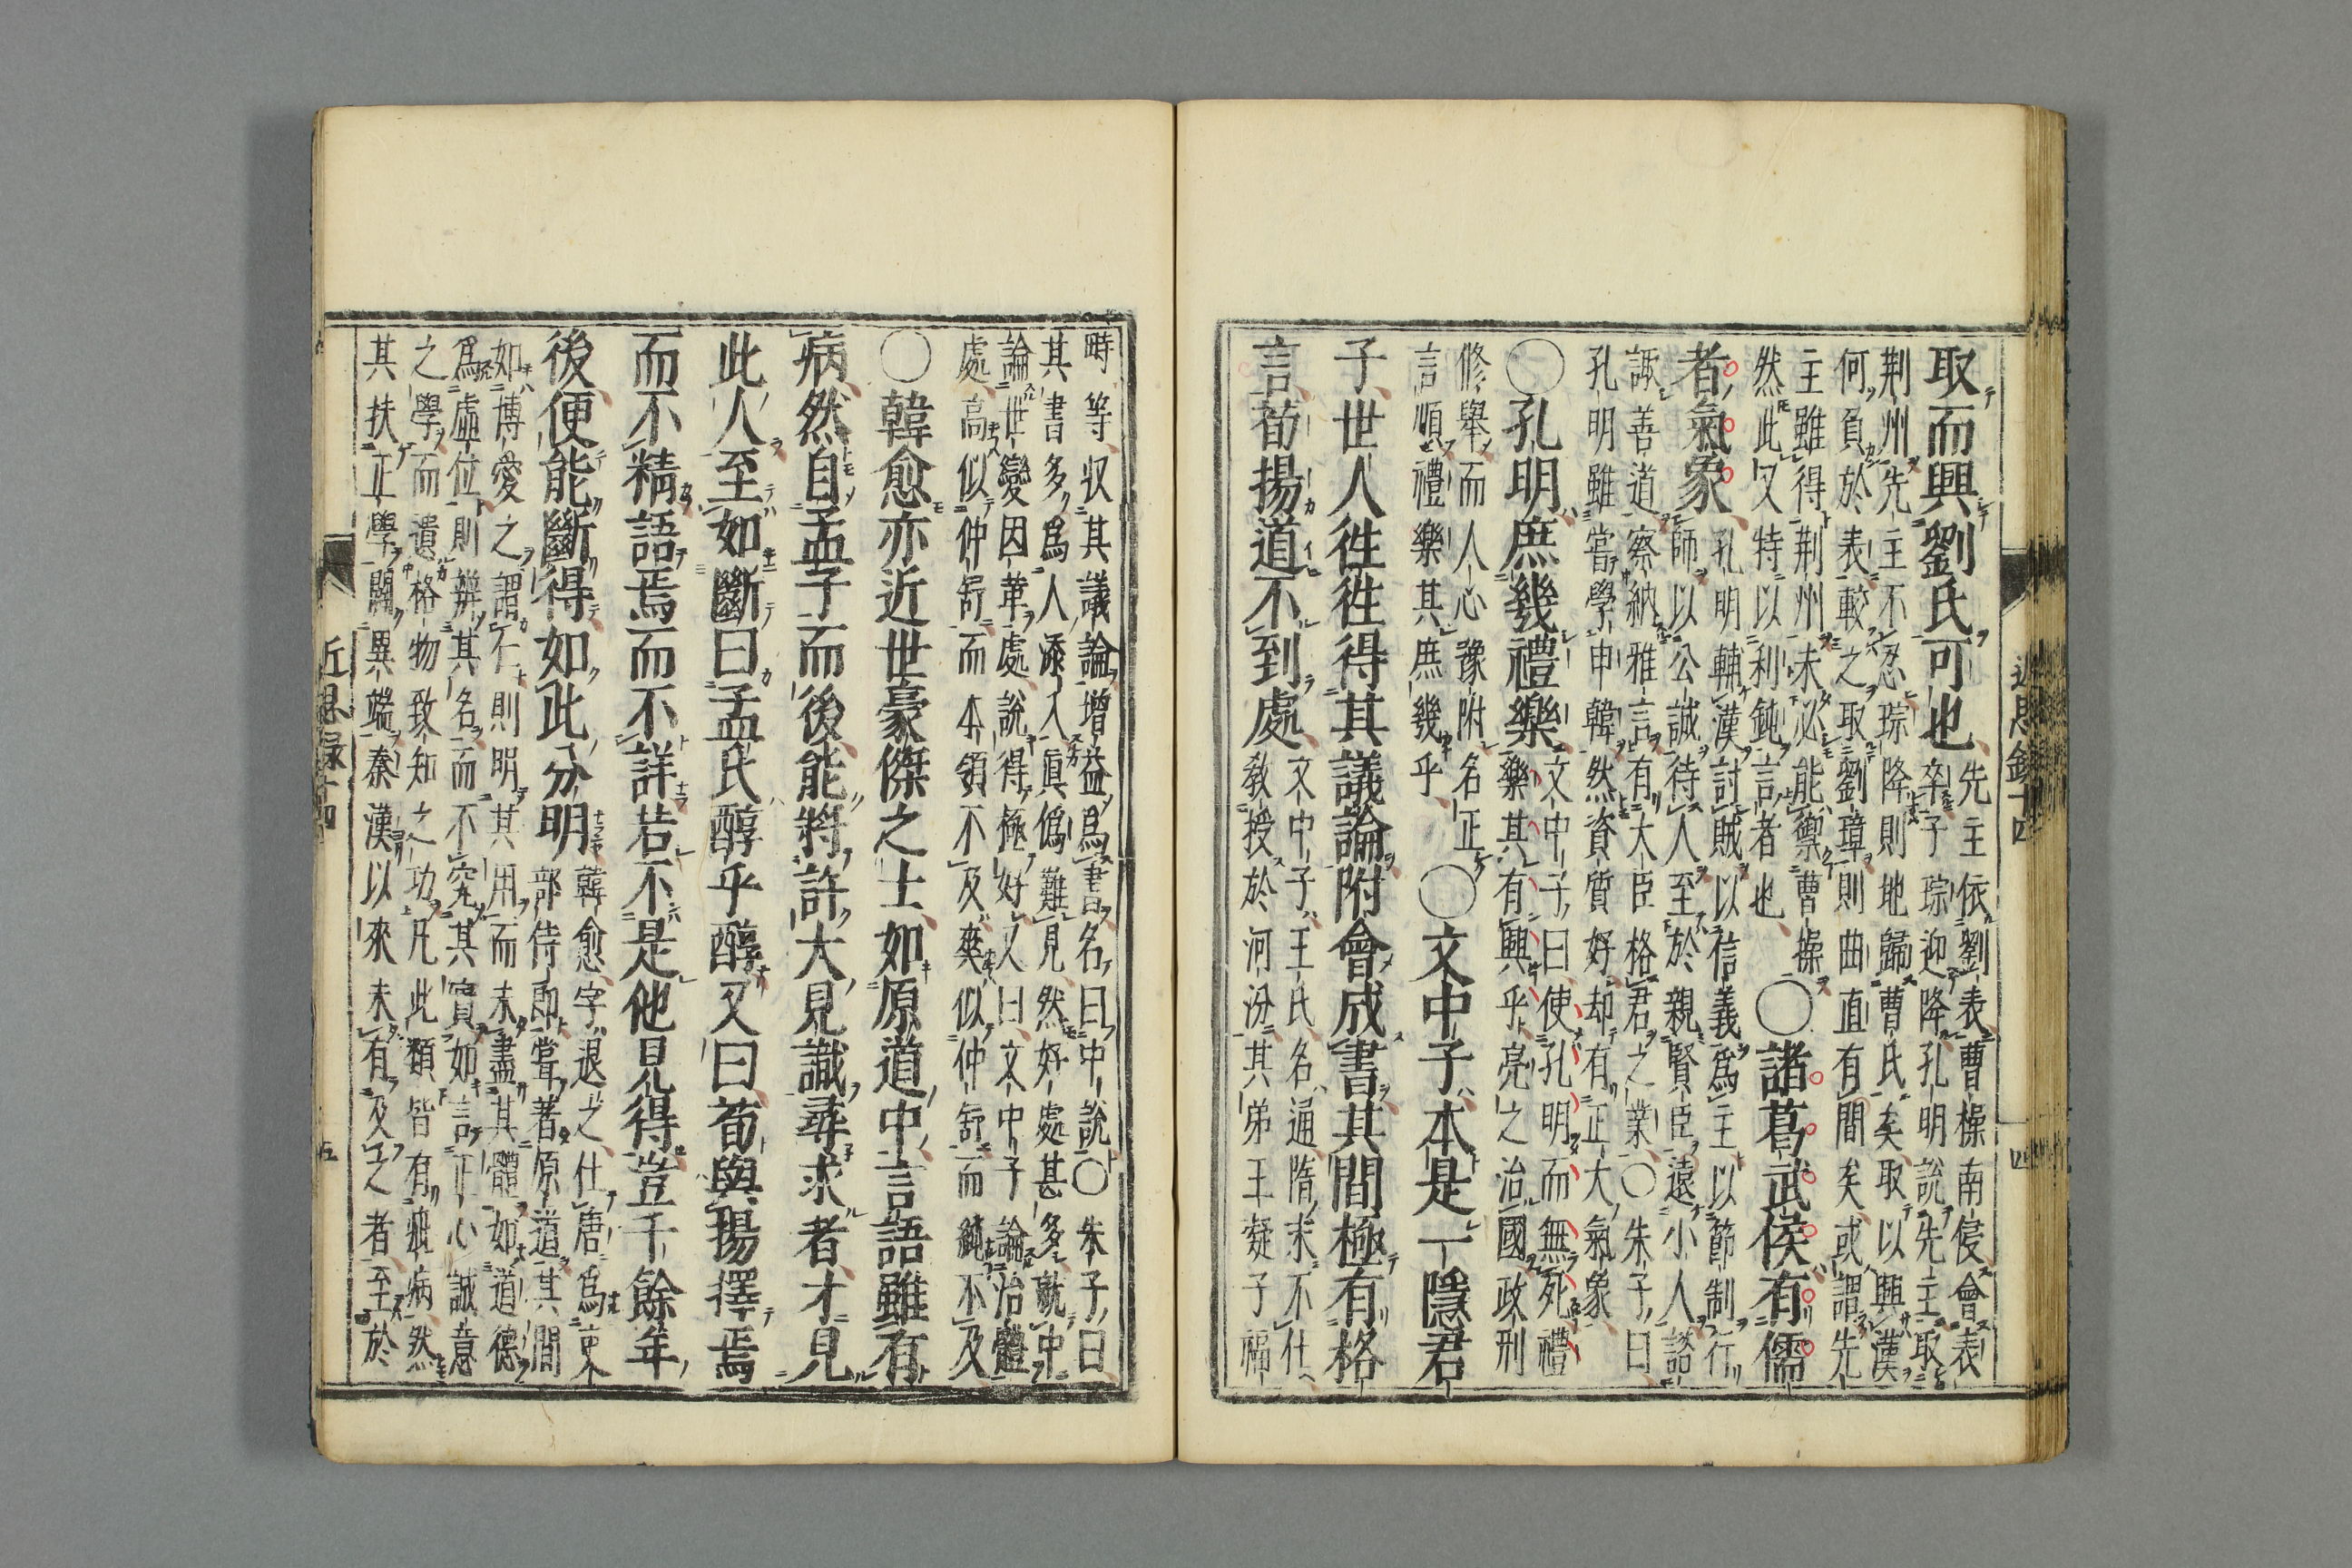 取而興劉氏可也
先主依劉表曹操南侵會表
卒子琮迎降孔明說先主取
荆州先主不忍琮降則地歸曹氏矣取以興漢
何負於表較之取劉璋則曲直有間矣或謂先
主雖得荆州未必能禦曹操
然此又特以利鈍言者也
○諸葛武侯有儒
者氣象
孔明輔漢討賊以信義爲主以節制行
師以公誠待人至於親賢臣遠小人諮
諏善道察納雅言有大臣格君之業○朱子曰
孔明雖嘗學申韓然資質好却有正大氣象
○孔明庶幾禮樂
文中子曰使孔明而無死禮
樂其有興乎亮之治國政刑
修舉而人心豫附名正
言順禮樂其庶幾乎
○文中子本是一隱君
子世人徃徃得其議論附會成書其間極有格
言荀揚道不到處
文中子王氏名通隋末不仕
敎授於河汾其弟王凝子福
近思錄十四
四
時等収其議論增益爲書名曰中說○朱子曰
其書多爲人添入眞僞難見然好處甚多就中
論世變因革處說得極好又曰文中子論治體
處高似仲舒而本領不及爽似仲舒而純不及
○韓愈亦近世豪傑之士如原道中言語雖有
病然自孟子而後能將許大見識尋求者才見
此人至如斷曰孟氏醇乎醇又曰荀與揚擇焉
而不精語焉而不詳若不是他見得豈千餘年
後便能斷得如此分明
韓愈字退之仕唐爲吏
部侍郎嘗著原道其間
如博愛之謂仁則明其用而未盡其體如道德
爲虛位則辨其名而不究其實如言正心誠意
之學而遺格物致知之功凡此類皆有疵病然
其扶正學闢異端秦漢以來未有及之者至於
近思錄十四
五